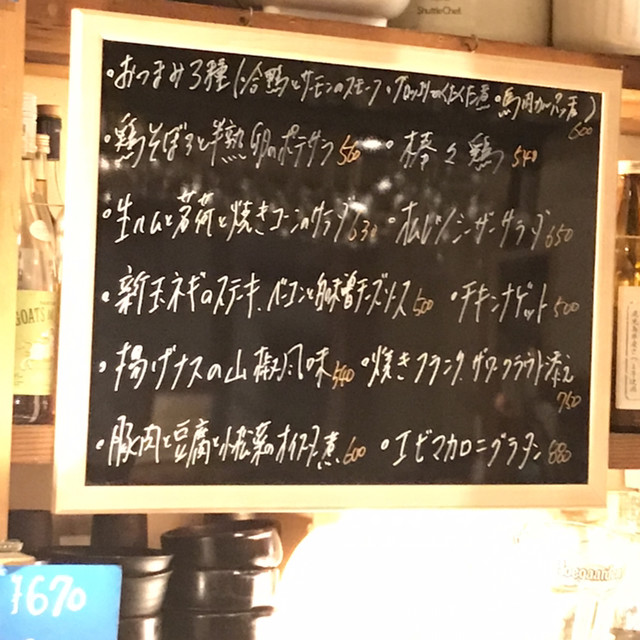 ShuttleChef
・おつまみ3種(合鴨とサーモンのスモーク・ブロッコリーのくたくた煮・馬肉カルパッチョ)
600
・鶏そぼろと半熟卵のポテサラ 560 ・棒々鶏 540
・生ハムと茗荷と焼きコーンのサラダ 630 ・シーザーサラダ 650
・新玉ネギのステーキ、ベーコンと味噌チーズソース 500 ・チキンナゲット 500
・揚げナスの山椒風味 540 ・焼きフランク、ザワークラウト添え
750
・豚肉と豆腐と小松菜のオイスター煮 600 ・エビマカロニグラタン 880
¥670